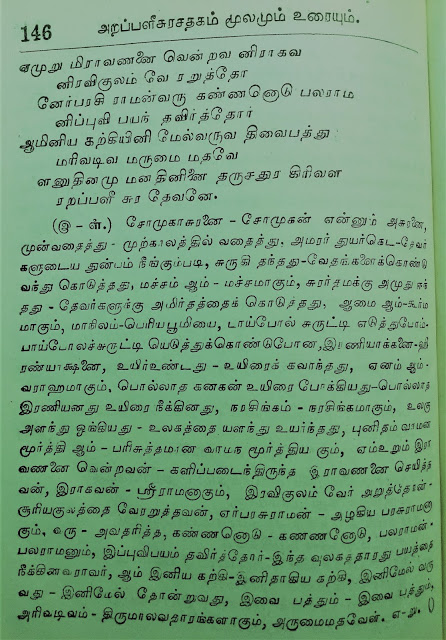 146 அறப்பளீசுரசதகம் மூலமும் உரையும்.
ஏமுறு மிராவணனை வென்றவ னிராகவ
னிரவிகுலம் வே ரறுத்தோ
னேர்பரசி ராமன்வரு கண்ணனொடு பலராம
னிப்புவி பயந் தவிர்த்தோர்
ஆமினிய கற்கியினி மேல்வருவ திவைபத்து
மரிவடிவ மருமை மதவே
ளனுதினமு மனதினினை தருசதுர கிரிவள
ரறப்பளீ சுர தேவனே.
(இ - ள்.) சோமுகாசுரனை - சோமுகன் என்னும் அசுரனை,
முன்வதைத்து - முற்காலத்தில் வதைத்து, அமரர் துயர்கெட-தேவர்
களுடைய துன்பம் நீங்கும்படி, சுருதி தந்தது-வேதங்களைக்கொண்டு
வந்து கொடுத்தது, மச்சம் ஆம் - மச்சமாகும், சுரர்தமக்கு அமுது தந்
தது - தேவர்களுக்கு அமிர்தத்தைக் கொடுத்தது, ஆமை ஆம்-கூர்ம
மாகும், மாநிலம்-பெரியபூமியை, பாய்போல் சுருட்டி எடுத்துபோம்-
பாய்போலச்சுருட்டி யெடுத்துக்கொண்டுபோன, இரணியாக்கனை-ஹி
ரண்யாக்ஷனை, உயிர்உண்டது - உயிரைக் கவர்ந்தது, ஏனம் ஆம் -
வராஹமாகும், பொல்லாத கனகன் உயிரை போக்கியது-பொல்லாத
இரணியனது உயிரை நீக்கினது, நரசிங்கம் - நரசிங்கமாகும், உலகு
அளந்து ஓங்கியது - உலகத்தை யளந்து உயர்ந்தது, புனிதம் வாமன
மூர்த்தி ஆம் - பரிசுத்தமான வாமந மூர்த்திய கும், ஏம்உறும் இரா
வணனை வென்றவன் - களிப்படைந்திருந்த இராவணனை செயித்த
வன், இராகவன் - ஸ்ரீராமனாகும், இரவிகுலம் வேர் அறுத்தோன் -
சூரியகுலத்தை வேரறுத்தவன், ஏர்பரசுராமன் - அழகிய பரசுராமனா
கும், வரு - அவதரித்த, கண்ணனொடு - கண்ணனோடு, பலராமன் -
பலராமனும், இப்புவிபயம் தவிர்த்தோர்-இந்த வுலகத்தாரது பயத்தை
நீக்கினவராவர், ஆம் இனிய கற்கி-இனிதாகிய கற்கி, இனிமேல் வரு
வது - இனிமேல் தோன்றுவது, இவை பத்தும் - இவை பத்தும்,
அரிவடிவம் - திருமாலவதாரங்களாகும், அருமைமதவேள். எ-று. ()